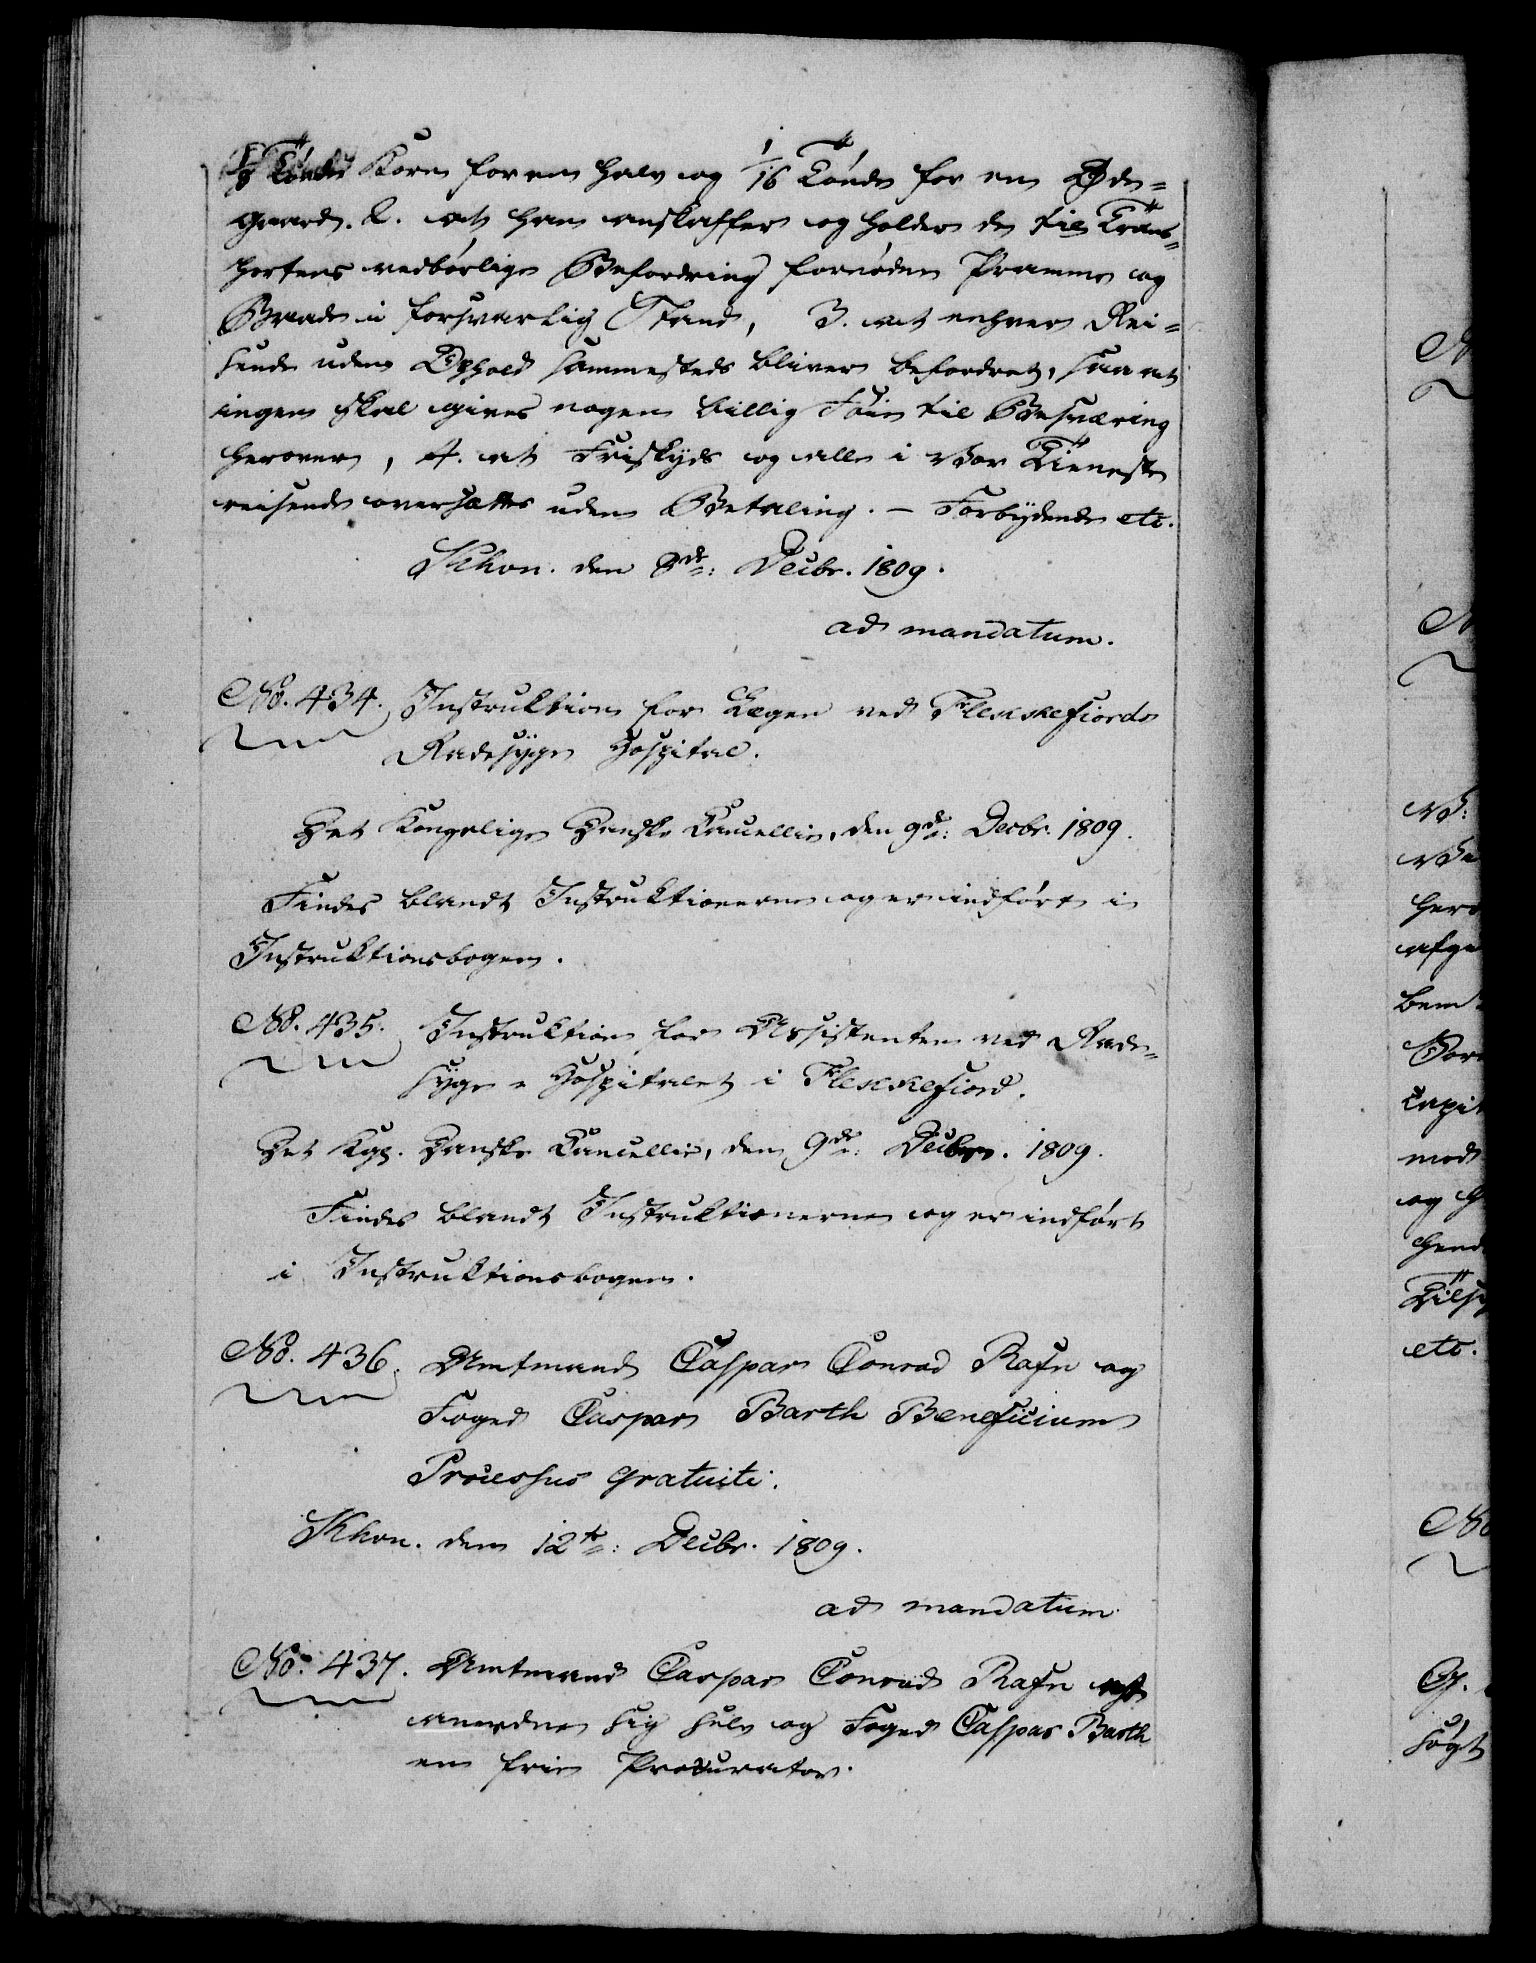 Tönde Korn for een halv og 1/16 Tönde for een Øde=
gaard. 2. at han anskaffer og holder de til Trans=
portens vedbörlige Befordring fornöden Pramme og
Baade i forsvarlig Stand, 3. at enhver Rei=
sende uden Ophold sammesteds bliver befordret, saa at
ingen skal gives nogen billig Föie til Besværing
herover, 4. at Friskyds og alle i Vor Tieneste
reisende oversættes uden Betaling. - Forbydende etc.
Khvn. den 8de: Decbr. 1809.
ad mandatum.
No. 434. Instruktion for Lægen ved Flekkefiords
Radesyge Hospital.
Det Kongelige Danske Cancellie, den 9de: Decbr. 1809.
Findes blandt Instruktionerne og er indfört i
Instruktionsbogen.
No. 435. Instruktion for Assistenten ved Rade=
syge = Hospitalet i Flekkefiord.
Det Kgl. Danske Cancellie, den 9de: Decbr. 1809.
Findes blandt Instruktionerne og er indfört
i Instruktionsbogen.
No. 436. Amtmand Caspar Conrad Rafn og
Foged Caspar Barth Beneficium
Processus gratuiti.
Khvn. den 12te: Decbr. 1809.
ad mandatum
No. 437. Amtmand Caspar Conrad Rafn at
anordne sig selv og Foged Caspar Barth
en frie Procurator.